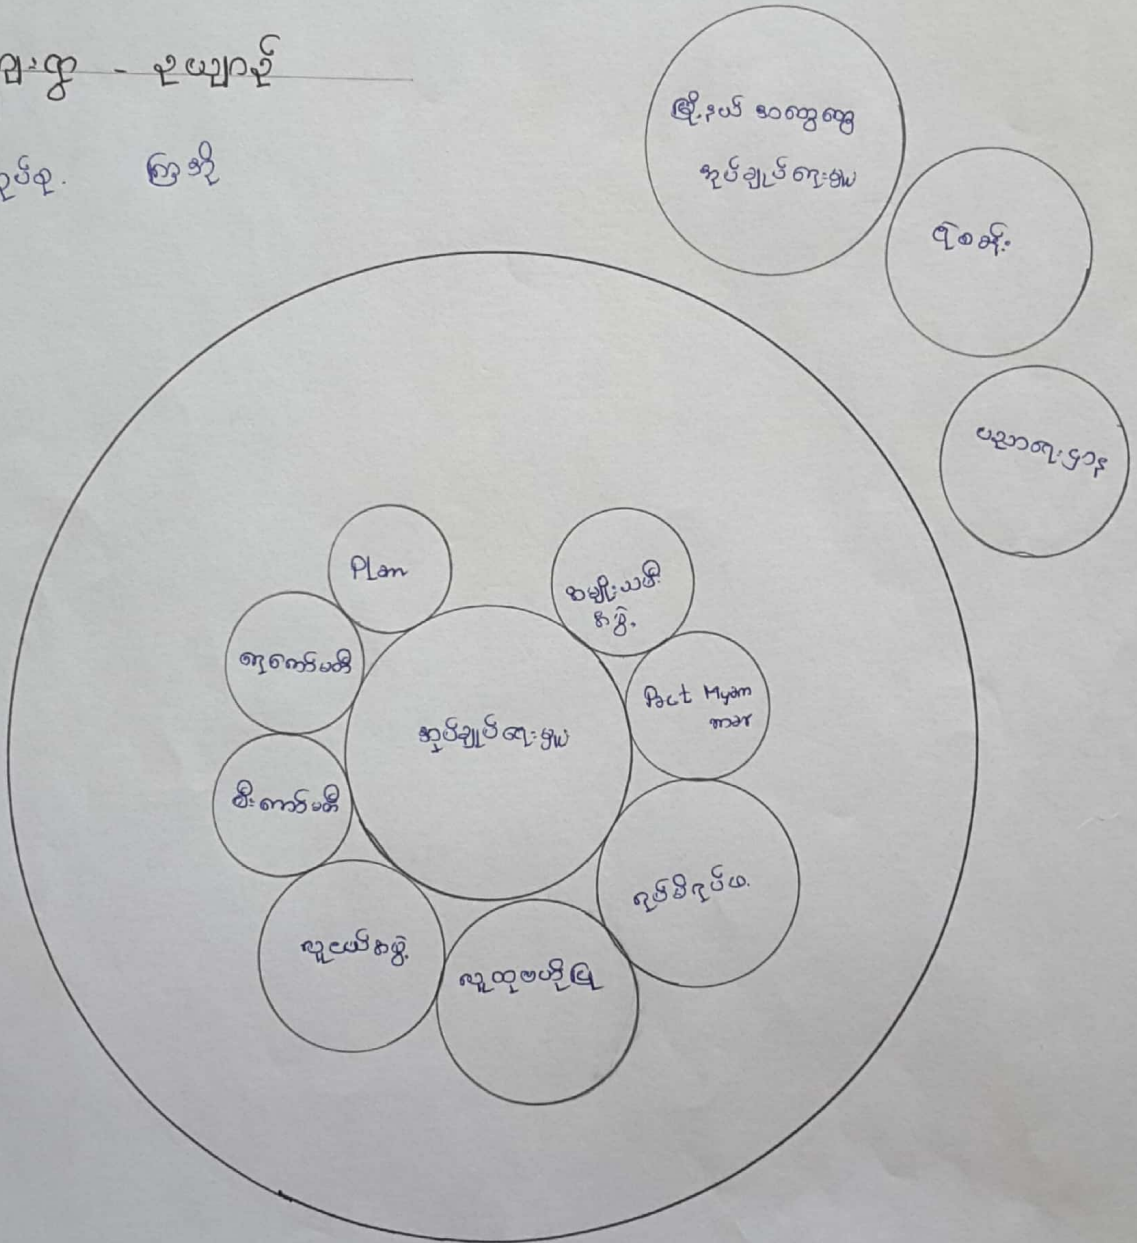 ကျေးရွာ - ဥယျာဉ်
အုပ်စု. ကြအို
မြို့နယ် အထွေထွေ
အုပ်ချုပ်ရေးမှုး
ရဲစခန်း
ပညာရေးဌာန
PLan
အမျိုးသမီး
အဖွဲ့.
ရေကော်မတီ
Pact Myan
mar
အုပ်ချုပ်ရေးမှုး
မီးကော်မတီ
ရပ်မိရပ်ဖ.
လူငယ်အဖွဲ့
လူထုဗဟိုပြု